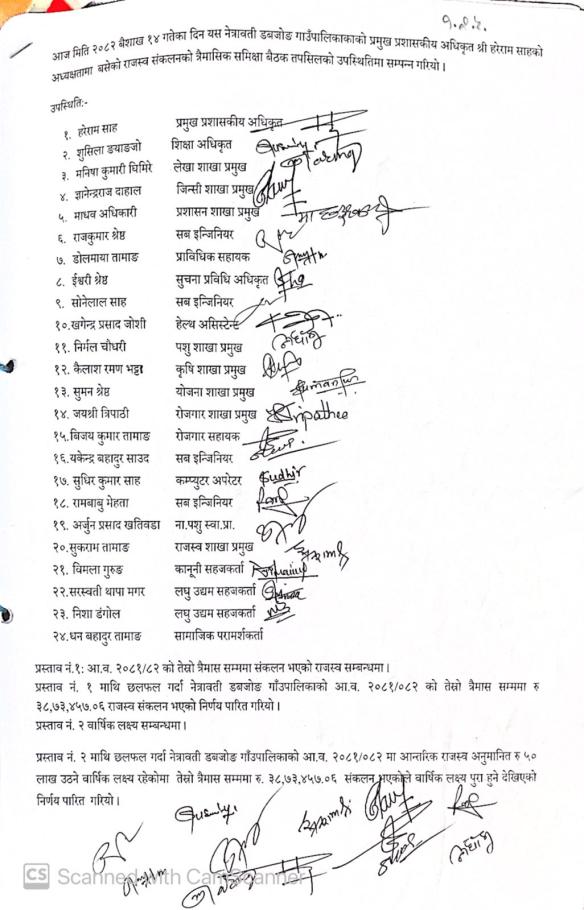 आज मिति २०८२ बैशाख १४ गतेका दिन यस नेत्रावती डबजोङ गाउँपालिकाकाको प्रमुख प्रशासकीय अधिकृत श्री हरेराम साहको
अध्यक्षतामा बसेको राजस्व संकलनको त्रैमासिक समिक्षा बैठक तपसिलको उपस्थितिमा सम्पन्न गरियो ।
उपस्थितिः-
१. हरेराम साह प्रमुख प्रशासकीय अधिकृत
२. शुसिला ङयाङजो शिक्षा अधिकृत
३. मनिषा कुमारी घिमिरे लेखा शाखा प्रमुख
४. ज्ञानेन्द्रराज दाहाल जिन्सी शाखा प्रमुख
५. माधव अधिकारी प्रशासन शाखा प्रमुख
६. राजकुमार श्रेष्ठ सब इन्जिनियर
७. डोलमाया तामाङ प्राविधिक सहायक
८. ईश्वरी श्रेष्ठ सुचना प्रविधि अधिकृत
९. सोनेलाल साह सब इन्जिनियर
१०.खगेन्द्र प्रसाद जोशी हेल्थ असिस्टेन्ट
११. निर्मल चौधरी पशु शाखा प्रमुख
१२. कैलाश रमण भट्टा कृषि शाखा प्रमुख
१३. सुमन श्रेष्ठ योजना शाखा प्रमुख
१४. जयश्री त्रिपाठी रोजगार शाखा प्रमुख Tripathee
१५.बिजय कुमार तामाङ रोजगार सहायक
१६.यकेन्द्र बहादुर साउद सब इन्जिनियर
१७. सुधिर कुमार साह कम्प्युटर अपरेटर Sudhir
१८. रामबाबु मेहता सब इन्जिनियर
१९. अर्जुन प्रसाद खतिवडा ना.पशु स्वा.प्रा.
२०.सुकराम तामाङ राजस्व शाखा प्रमुख
२१. विमला गुरुङ कानूनी सहजकर्ता
२२.सरस्वती थापा मगर लघु उद्यम सहजकर्ता
२३. निशा डंगोल लघु उद्यम सहजकर्ता
२४.धन बहादुर तामाङ सामाजिक परामर्शकर्ता
प्रस्ताव नं.१: आ.व. २०८१/८२ को तेस्रो त्रैमास सम्ममा संकलन भएको राजस्व सम्बन्धमा ।
प्रस्ताव नं. १ माथि छलफल गर्दा नेत्रावती डबजोङ गाँउपालिकाको आ.व. २०८१/०८२ को तेस्रो त्रैमास सम्ममा रु
३८,७३,४५७.०६ राजस्व संकलन भएको निर्णय पारित गरियो ।
प्रस्ताव नं. २ वार्षिक लक्ष्य सम्बन्धमा ।
प्रस्ताव नं. २ माथि छलफल गर्दा नेत्रावती डबजोङ गाँउपालिकाको आ.व. २०८१/०८२ मा आन्तरिक राजस्व अनुमानित रु ५०
लाख उठने वार्षिक लक्ष्य रहेकोमा तेस्रो त्रैमास सम्ममा रु. ३८,७३,४५७.०६ संकलन भएकोले वार्षिक लक्ष्य पुरा हुने देखिएको
निर्णय पारित गरियो ।
CS Scanned with CamScanner